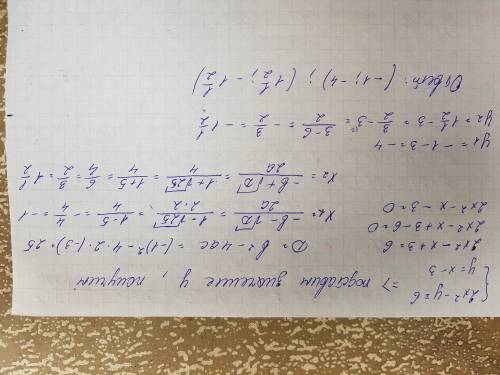 { 2x² - y = 6
{ y = x - 3 => подставим значение y, получим
2x² - x + 3 = 6
D = b² - 4ac = (-1)² - 4 · 2 · (-3) = 25
2x² - x + 3 - 6 = 0
2x² - x - 3 = 0
x₁ = (-b - √D)/2a = (1 - √25)/(2 · 2) = (1 - 5)/4 = -4/4 = -1
x₂ = (-b + √D)/2a = (1 + √25)/4 = (1 + 5)/4 = 6/4 = 3/2 = 1 1/2
y₁ = -1 - 3 = -4
y₂ = 1 1/2 - 3 = 3/2 - 3 = (3 - 6)/2 = -3/2 = -1 1/2
Ответ: (-1; -4); (1 1/2; -1 1/2)